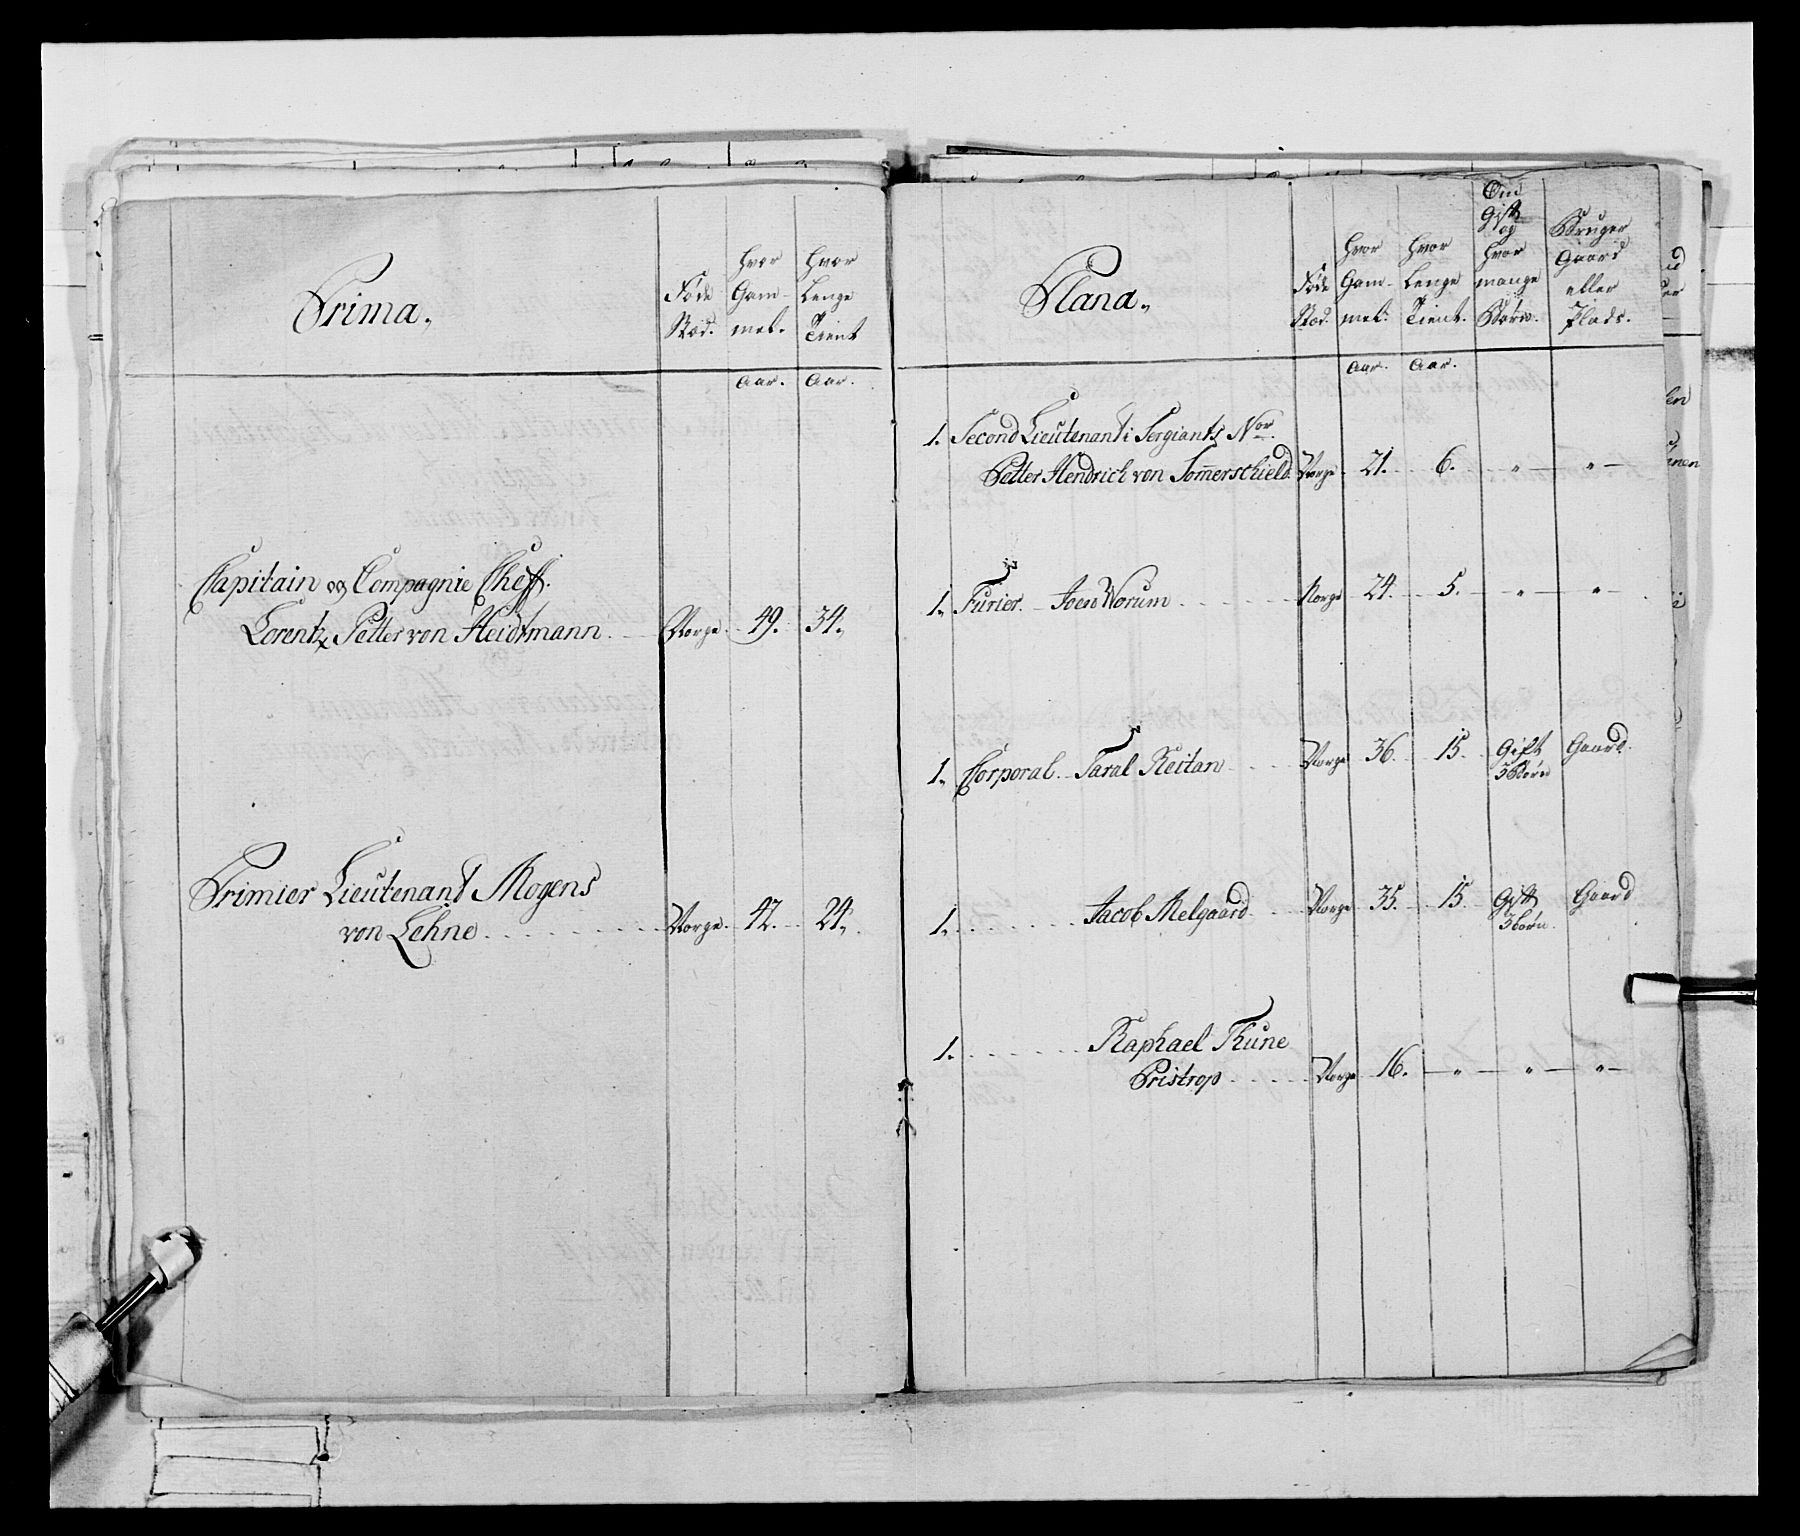 Prima.
Føde
Stæd.
hvor
Gam-
mel.
hvor
Lenge
Tient
Aar. Aar.
Capitain og Compagnie Cheff.
Lorentz Petter von Heidtmann. Norge. 49. 34.
Primier Lieutenant Mogens
von Lehne Norge. 42. 24.
Plana.
Føde
Stæd.
hvor
Gam-
mel.
hvor
Lenge
Tient.
Om
Gift
og
hvor
mange
Børn.
Bruger
Gaard
eller
Plads.
Aar. Aar.
1. Second Lieutenant i Sergiants Nor.
Petter Hendrich von Sommerschield. Norge. 21. 6. " "
1. Furier. Joen Worum Norge 24. 5. " "
1. Corporal. Taral Reitan Norge 36. 15. Gift Gaard.
3 Børn
1. Jacob Melgaard Norge 35. 15. Gift Gaard
3 børn.
1. Raphael Thune
Pristrop Norge 16. " " "